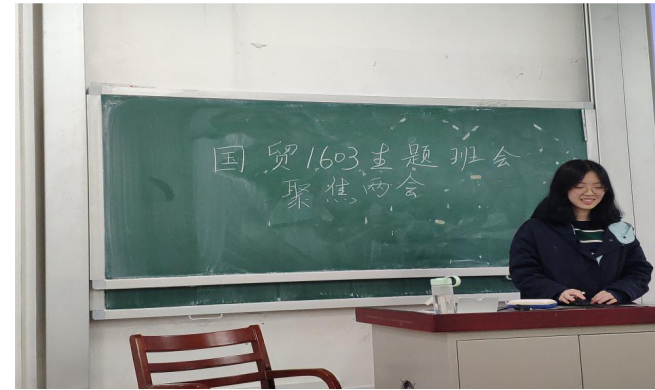 国贸1603主题班会
聚焦两会